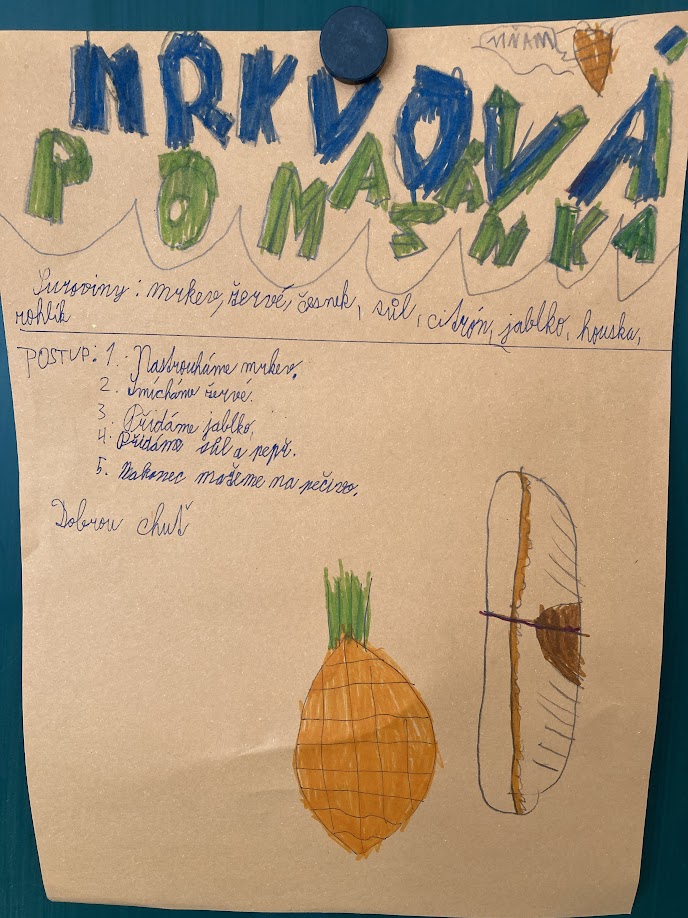 MŇAM
MRKVOVÁ
POMAZÁNKA
Suroviny: mrkev, žervé, česnek, sůl, citrón, jablko, houska,
rohlík
POSTUP: 1. Nastrouháme mrkev.
2. Smícháme žervé.
3. Přidáme jablko.
4. Přidáme sůl a pepř.
5. Nakonec mažeme na pečivo.
Dobrou chuť